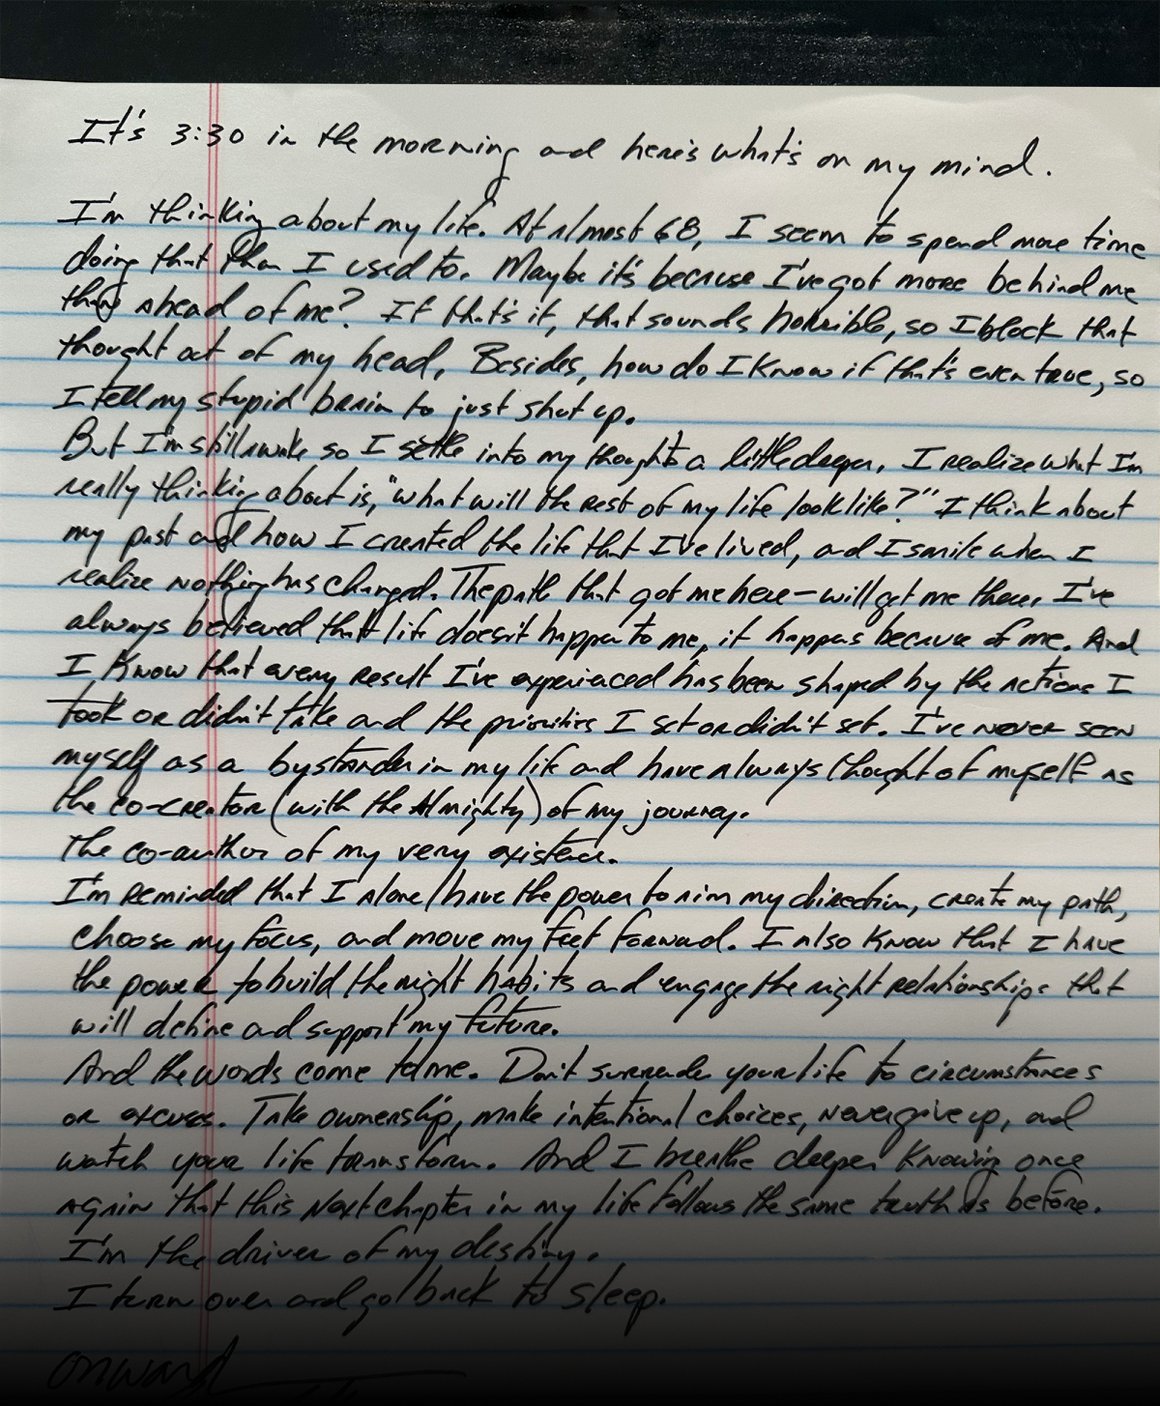 It's 3:30 in the morning and here's what's on my mind.
I'm thinking about my life. At almost 68, I seem to spend more time
doing that than I used to. Maybe it's because I've got more behind me
than ahead of me? If that's it, that sounds horrible, so I block that
thought out of my head. Besides, how do I know if that's even true, so
I tell my stupid brain to just shut up.
But I'm still awake so I settle into my thoughts a little deeper. I realize what I'm
really thinking about is, "what will the rest of my life look like?" I think about
my past and how I created the life that I've lived, and I smile when I
realize nothing has changed. The path that got me here - will get me there. I've
always believed that life doesn't happen to me, it happens because of me. And
I know that every result I've experienced has been shaped by the actions I
took or didn't take and the priorities I set or didn't set. I've never seen
myself as a bystander in my life and have always thought of myself as
the co-creator (with the Almighty) of my journey.
The co-author of my very existence.
I'm reminded that I alone have the power to aim my direction, create my path,
choose my focus, and move my feet forward. I also know that I have
the power to build the right habits and engage the right relationships that
will define and support my future.
And the words come to me. Don't surrender your life to circumstances
or excuses. Take ownership, make intentional choices, never give up, and
watch your life transform. And I breathe deeper knowing once
again that this next chapter in my life follows the same truth as before.
I'm the driver of my destiny.
I turn over and go back to sleep.
Onward